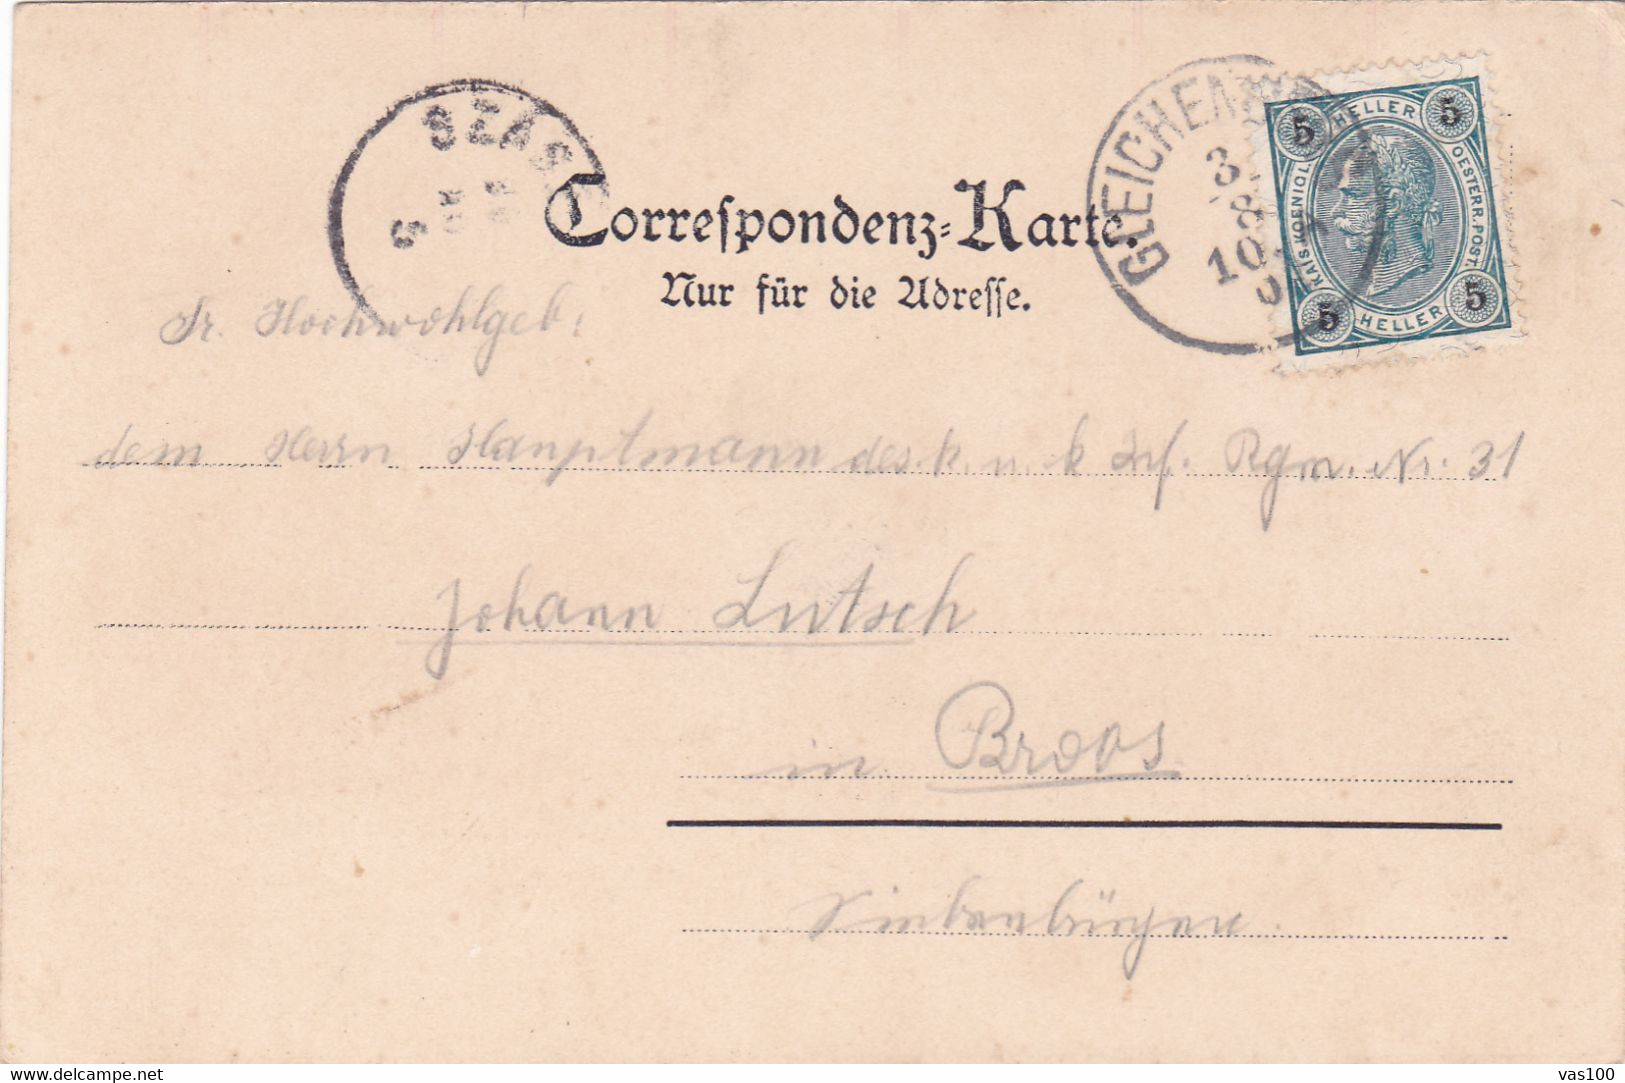 SZÁS
S
GLEICHEN
3
8
10
5 HELLER 5
KAIS. KOENIGL.
OESTERR. POST.
5 HELLER 5
Correspondenz-Karte.
Nur für die Adresse.
Sr. Hochwohlgeb.
dem Herrn Hauptmann des k. u. k Inf. Rgm. Nr. 31
Johann Lutsch
in Broos
Siebenbürgen.
Your Id on delcampe.net
vas100